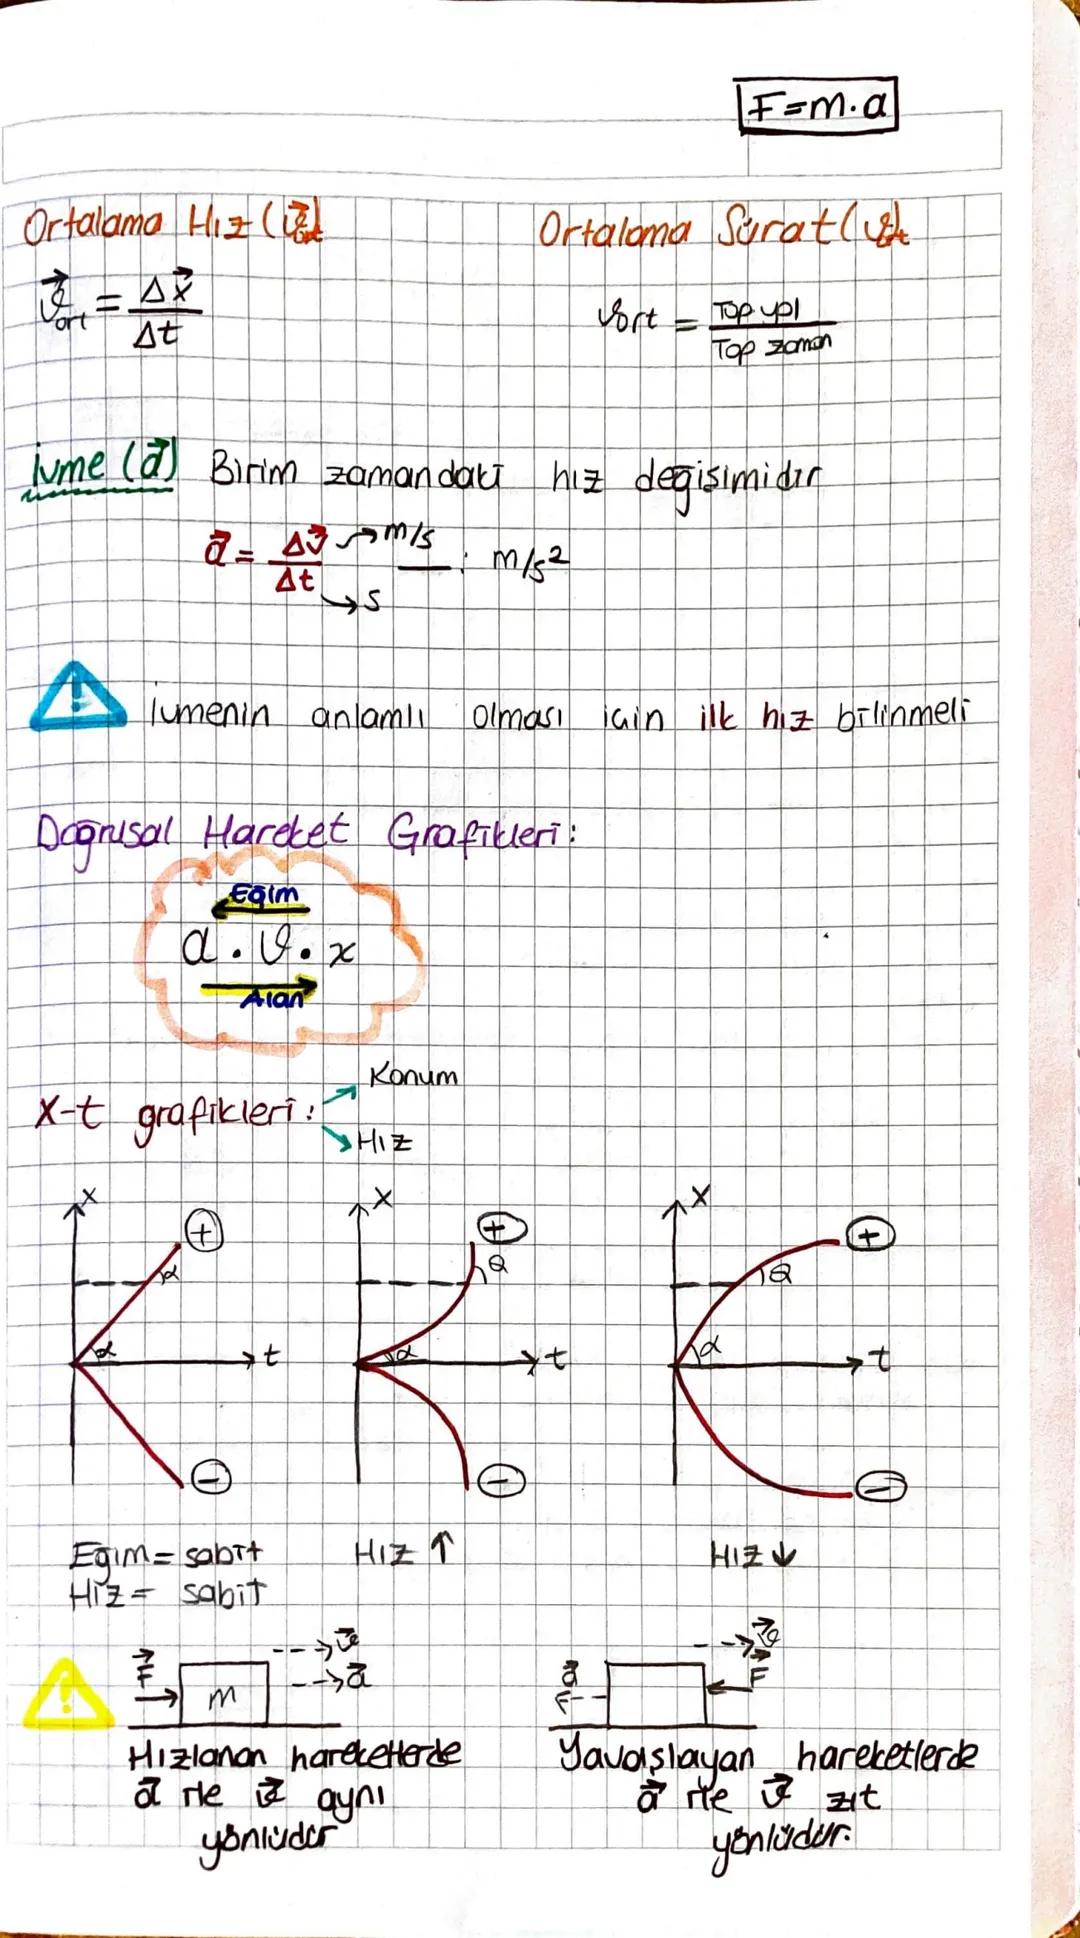 F=m.a
Ortalama Hız (v⃗ort)
Ortalama Sürat (vort)
v⃗ort = Δx⃗ / Δt
vort = Top ypl / Top zaman
İvme (a⃗) Birim zamandaki hız değişimidir
a⃗ = Δv⃗ / Δt → m/s → s : m/s²
İvmenin anlamlı olması için ilk hız bilinmeli
Doğrusal Hareket Grafikleri:
Eğim
a . v . x
Alan
Konum
X-t grafikleri:
Hız
x + α α t -
x + θ α t -
x + θ α t -
Eğim = sabit
Hız = sabit
Hız ↑
Hız ↓
F⃗ m v⃗ a⃗
a⃗ v⃗ F⃗
Hızlanan hareketlerde
a⃗ ile v⃗ aynı
yönlüdür
Yavaşlayan hareketlerde
a⃗ ile v⃗ zıt
yönlüdür.